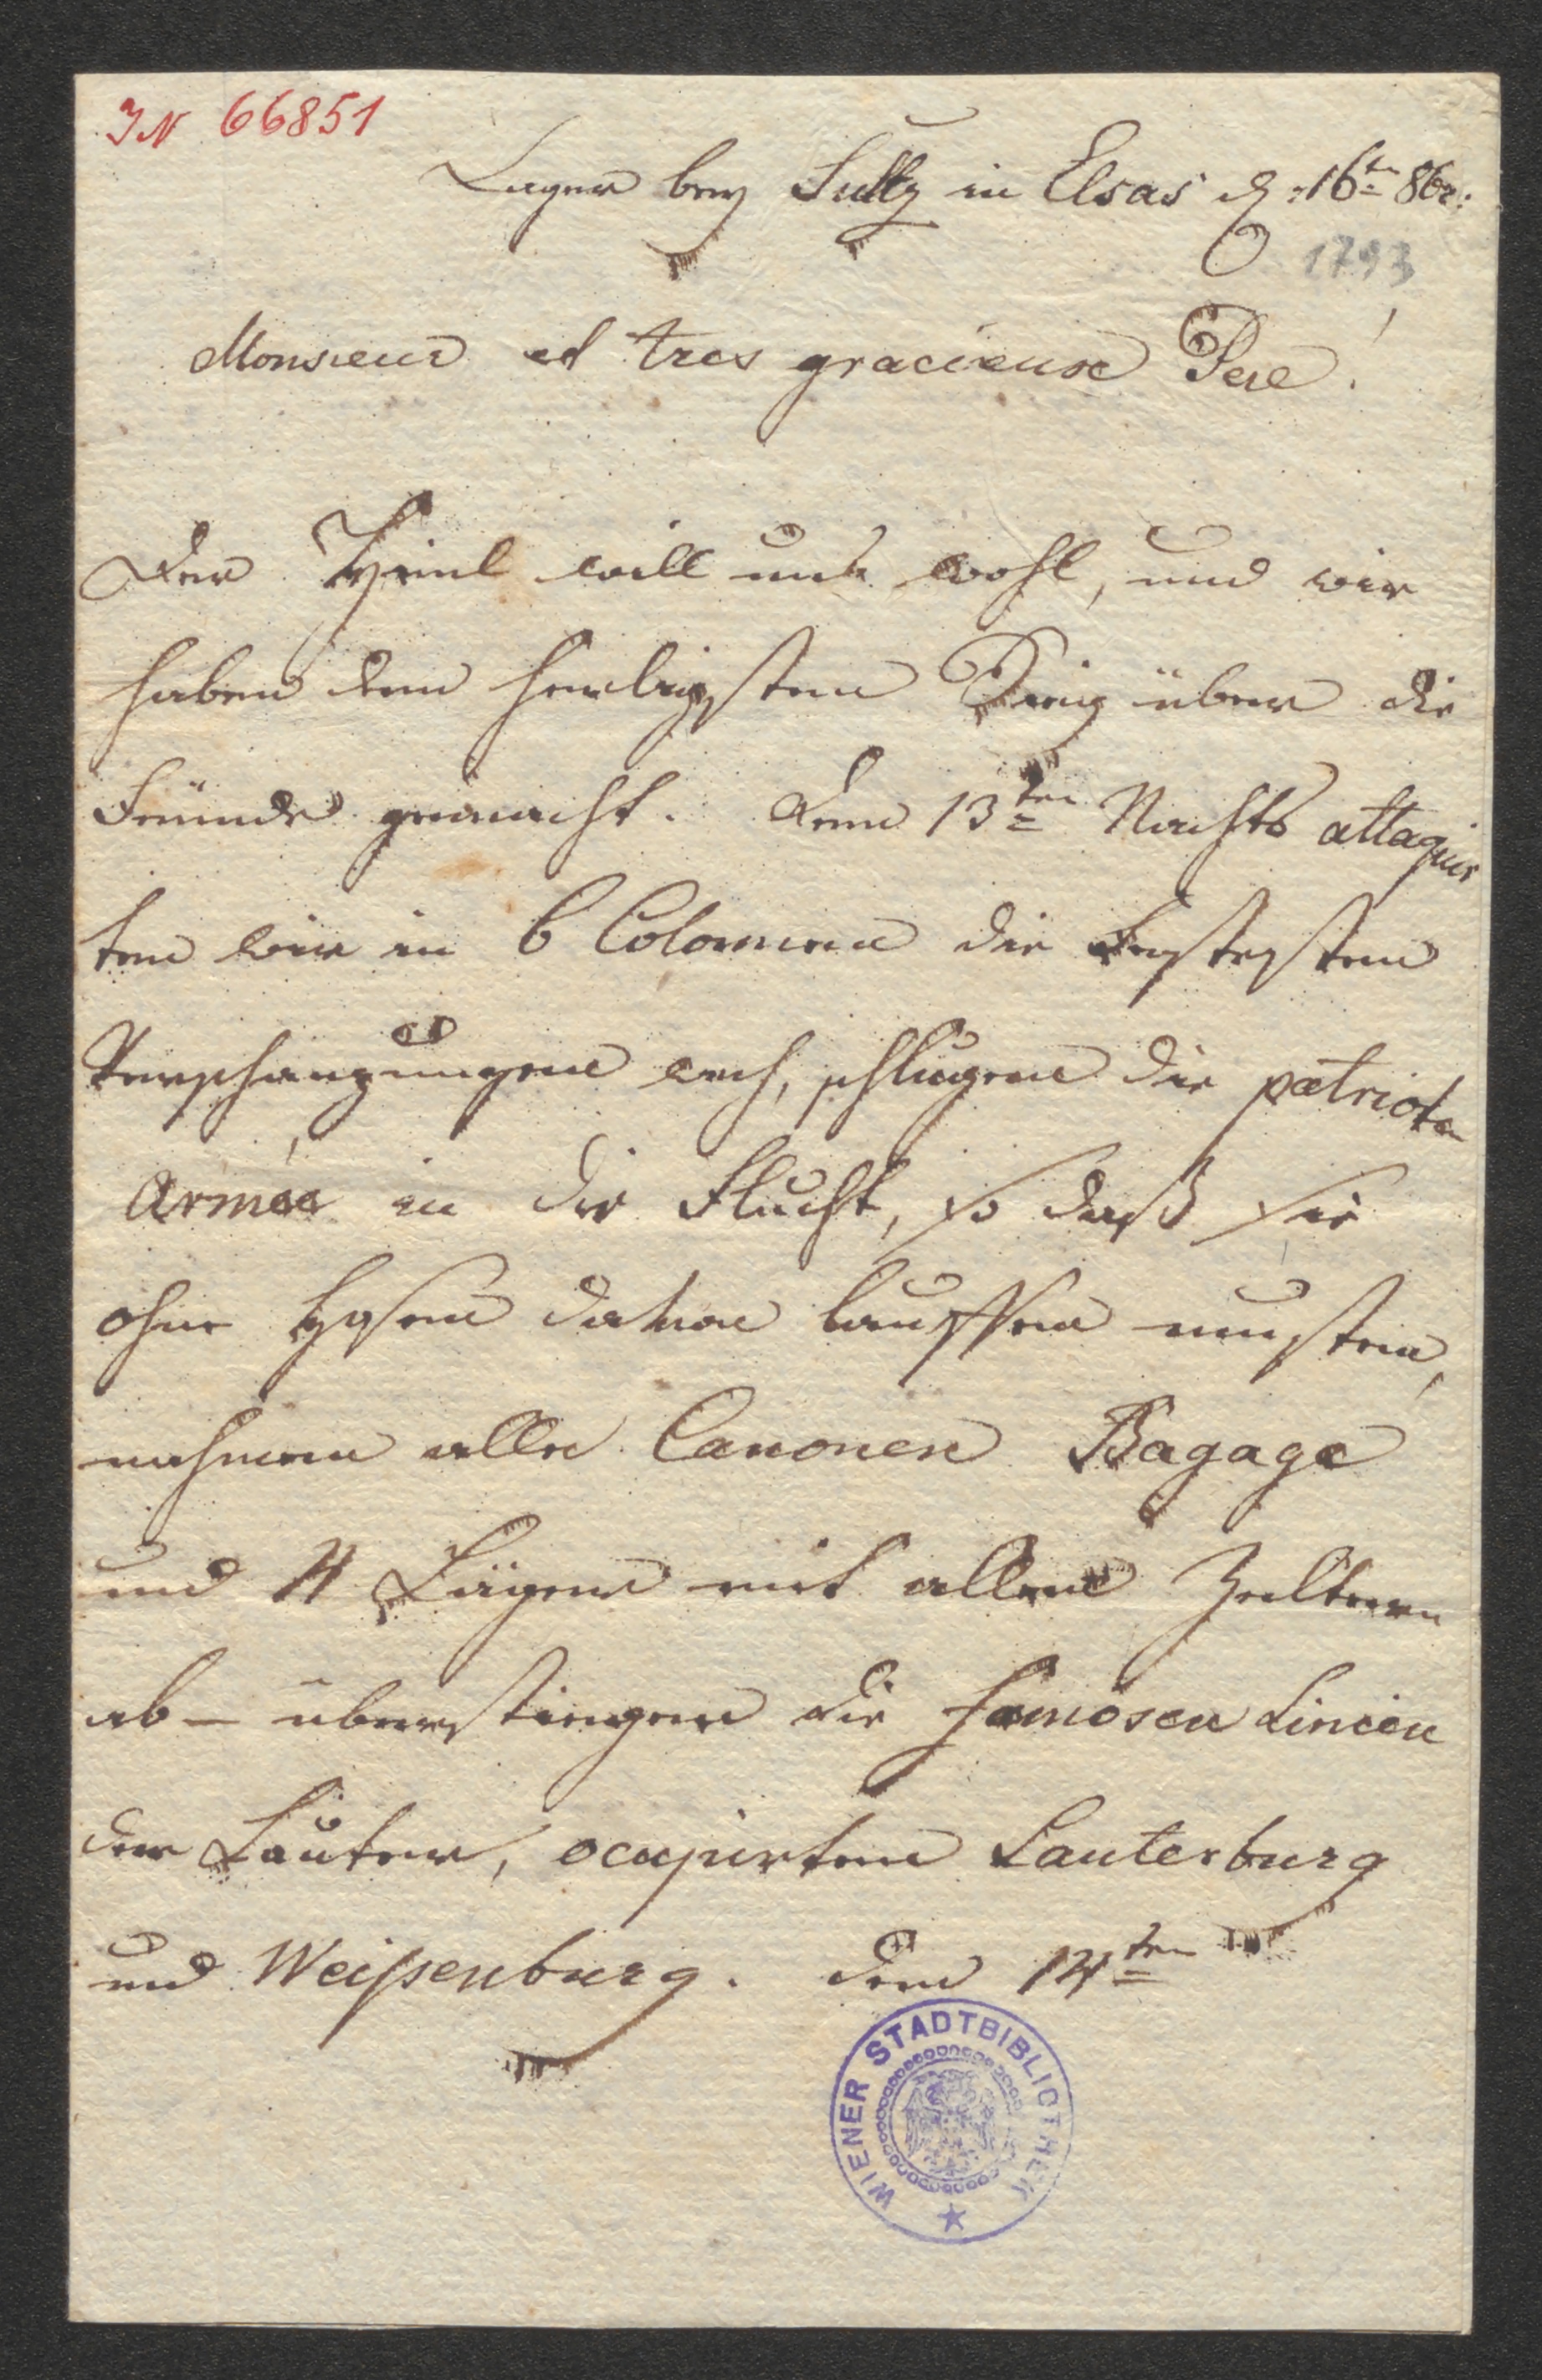 IN 66851
Lager bey Sultz in Elsas d. 16ten 8br:
1793
Monsieur et tres gracieuse Pere!
Der Himl will uns wohl, und wir
haben den herligsten Sieg über die
Feinde gemacht. Den 13ten Nachts attaquir
ten wir in 6 Colonnen die Festesten
Verschanzungen wech, schlugen die patrioten
Armée in die Flucht, so daß sie
ohne Hosen davon lauffen musten,
nahmen alle Canonen Bagage
und 4 Läger mit allen Zeltern
ab – überstiegen die famosen Linien
der Lauter, occupirten Lauterburg
und Weißenburg. Den 14ten
WIENER STADTBIBLIOTHEK